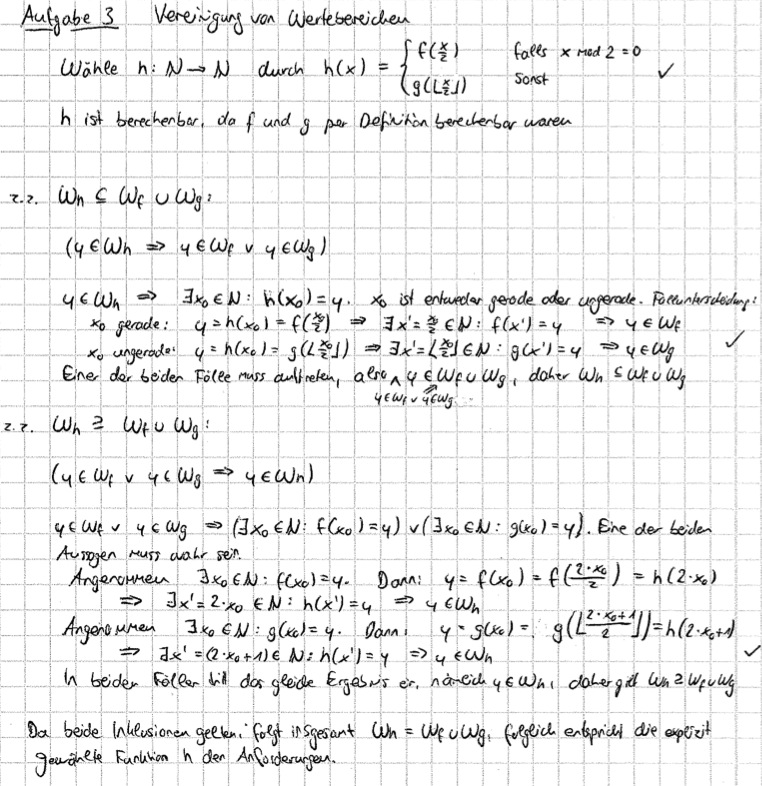 Aufgabe 3 Vereinigung von Wertebereichen
Wähle h: ℕ → ℕ durch h(x) = { f(x/2) falls x mod 2 = 0
g(⌊x/2⌋) sonst ✓
h ist berechenbar, da f und g per Definition berechenbar waren
z.z. W_h ⊆ W_f ∪ W_g:
(y ∈ W_h ⇒ y ∈ W_f ∨ y ∈ W_g)
y ∈ W_h ⇒ ∃x₀ ∈ ℕ: h(x₀) = y. x₀ ist entweder gerade oder ungerade. Fallunterscheidung:
x₀ gerade: y = h(x₀) = f(x₀/2) ⇒ ∃x' = x₀/2 ∈ ℕ: f(x') = y ⇒ y ∈ W_f
x₀ ungerade: y = h(x₀) = g(⌊x₀/2⌋) ⇒ ∃x' = ⌊x₀/2⌋ ∈ ℕ: g(x') = y ⇒ y ∈ W_g ✓
Einer der beiden Fälle muss auftreten, also ∧ y ∈ W_f ∪ W_g, daher W_h ⊆ W_f ∪ W_g
y ∈ W_f ∨ y ∈ W_g ⇒
z.z. W_h ⊇ W_f ∪ W_g:
(y ∈ W_f ∨ y ∈ W_g ⇒ y ∈ W_h)
y ∈ W_f ∨ y ∈ W_g ⇒ (∃x₀ ∈ ℕ: f(x₀) = y) ∨ (∃x₀ ∈ ℕ: g(x₀) = y). Eine der beiden
Aussagen muss wahr sein.
Angenommen ∃x₀ ∈ ℕ: f(x₀) = y. Dann: y = f(x₀) = f(2·x₀/2) = h(2·x₀)
⇒ ∃x' = 2·x₀ ∈ ℕ: h(x') = y ⇒ y ∈ W_h
Angenommen ∃x₀ ∈ ℕ: g(x₀) = y. Dann: y = g(x₀) = g(⌊(2·x₀+1)/2⌋) = h(2·x₀+1)
⇒ ∃x' = (2·x₀+1) ∈ ℕ: h(x') = y ⇒ y ∈ W_h ✓
In beiden Fällen tritt das gleiche Ergebnis ein, nämlich y ∈ W_h, daher gilt W_h ⊇ W_f ∪ W_g
Da beide Inklusionen gelten, folgt insgesamt W_h = W_f ∪ W_g, folglich entspricht die explizit
gewählte Funktion h den Anforderungen.